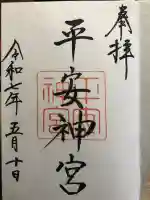 奉拝
平安神宮
平安神宮
令和七年五月十日